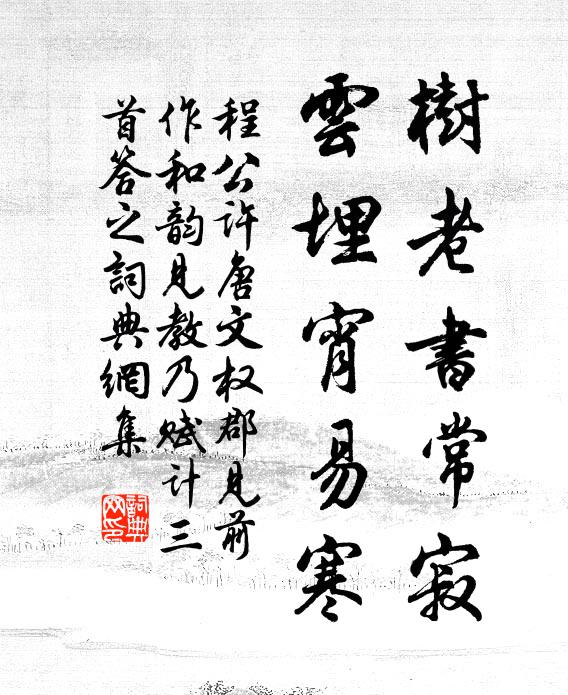 樹老書常寂
雲埋宵易寒
程公許唐文权郡見前
作和韵見教乃赋计三
首答之詞典網集
詞典網印